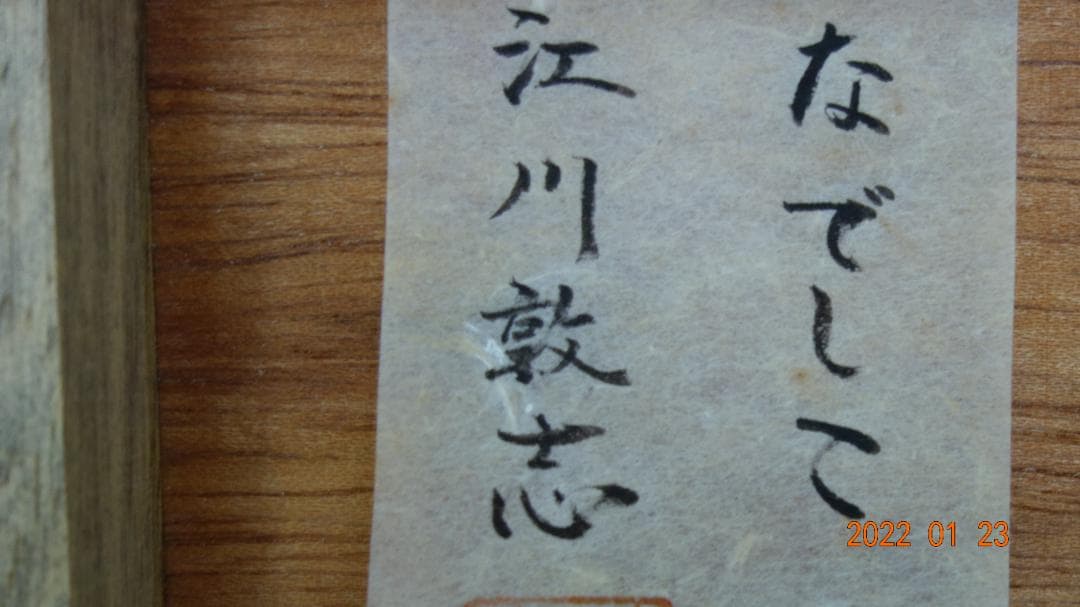 なでしこ
江川敦志
2022 01 23